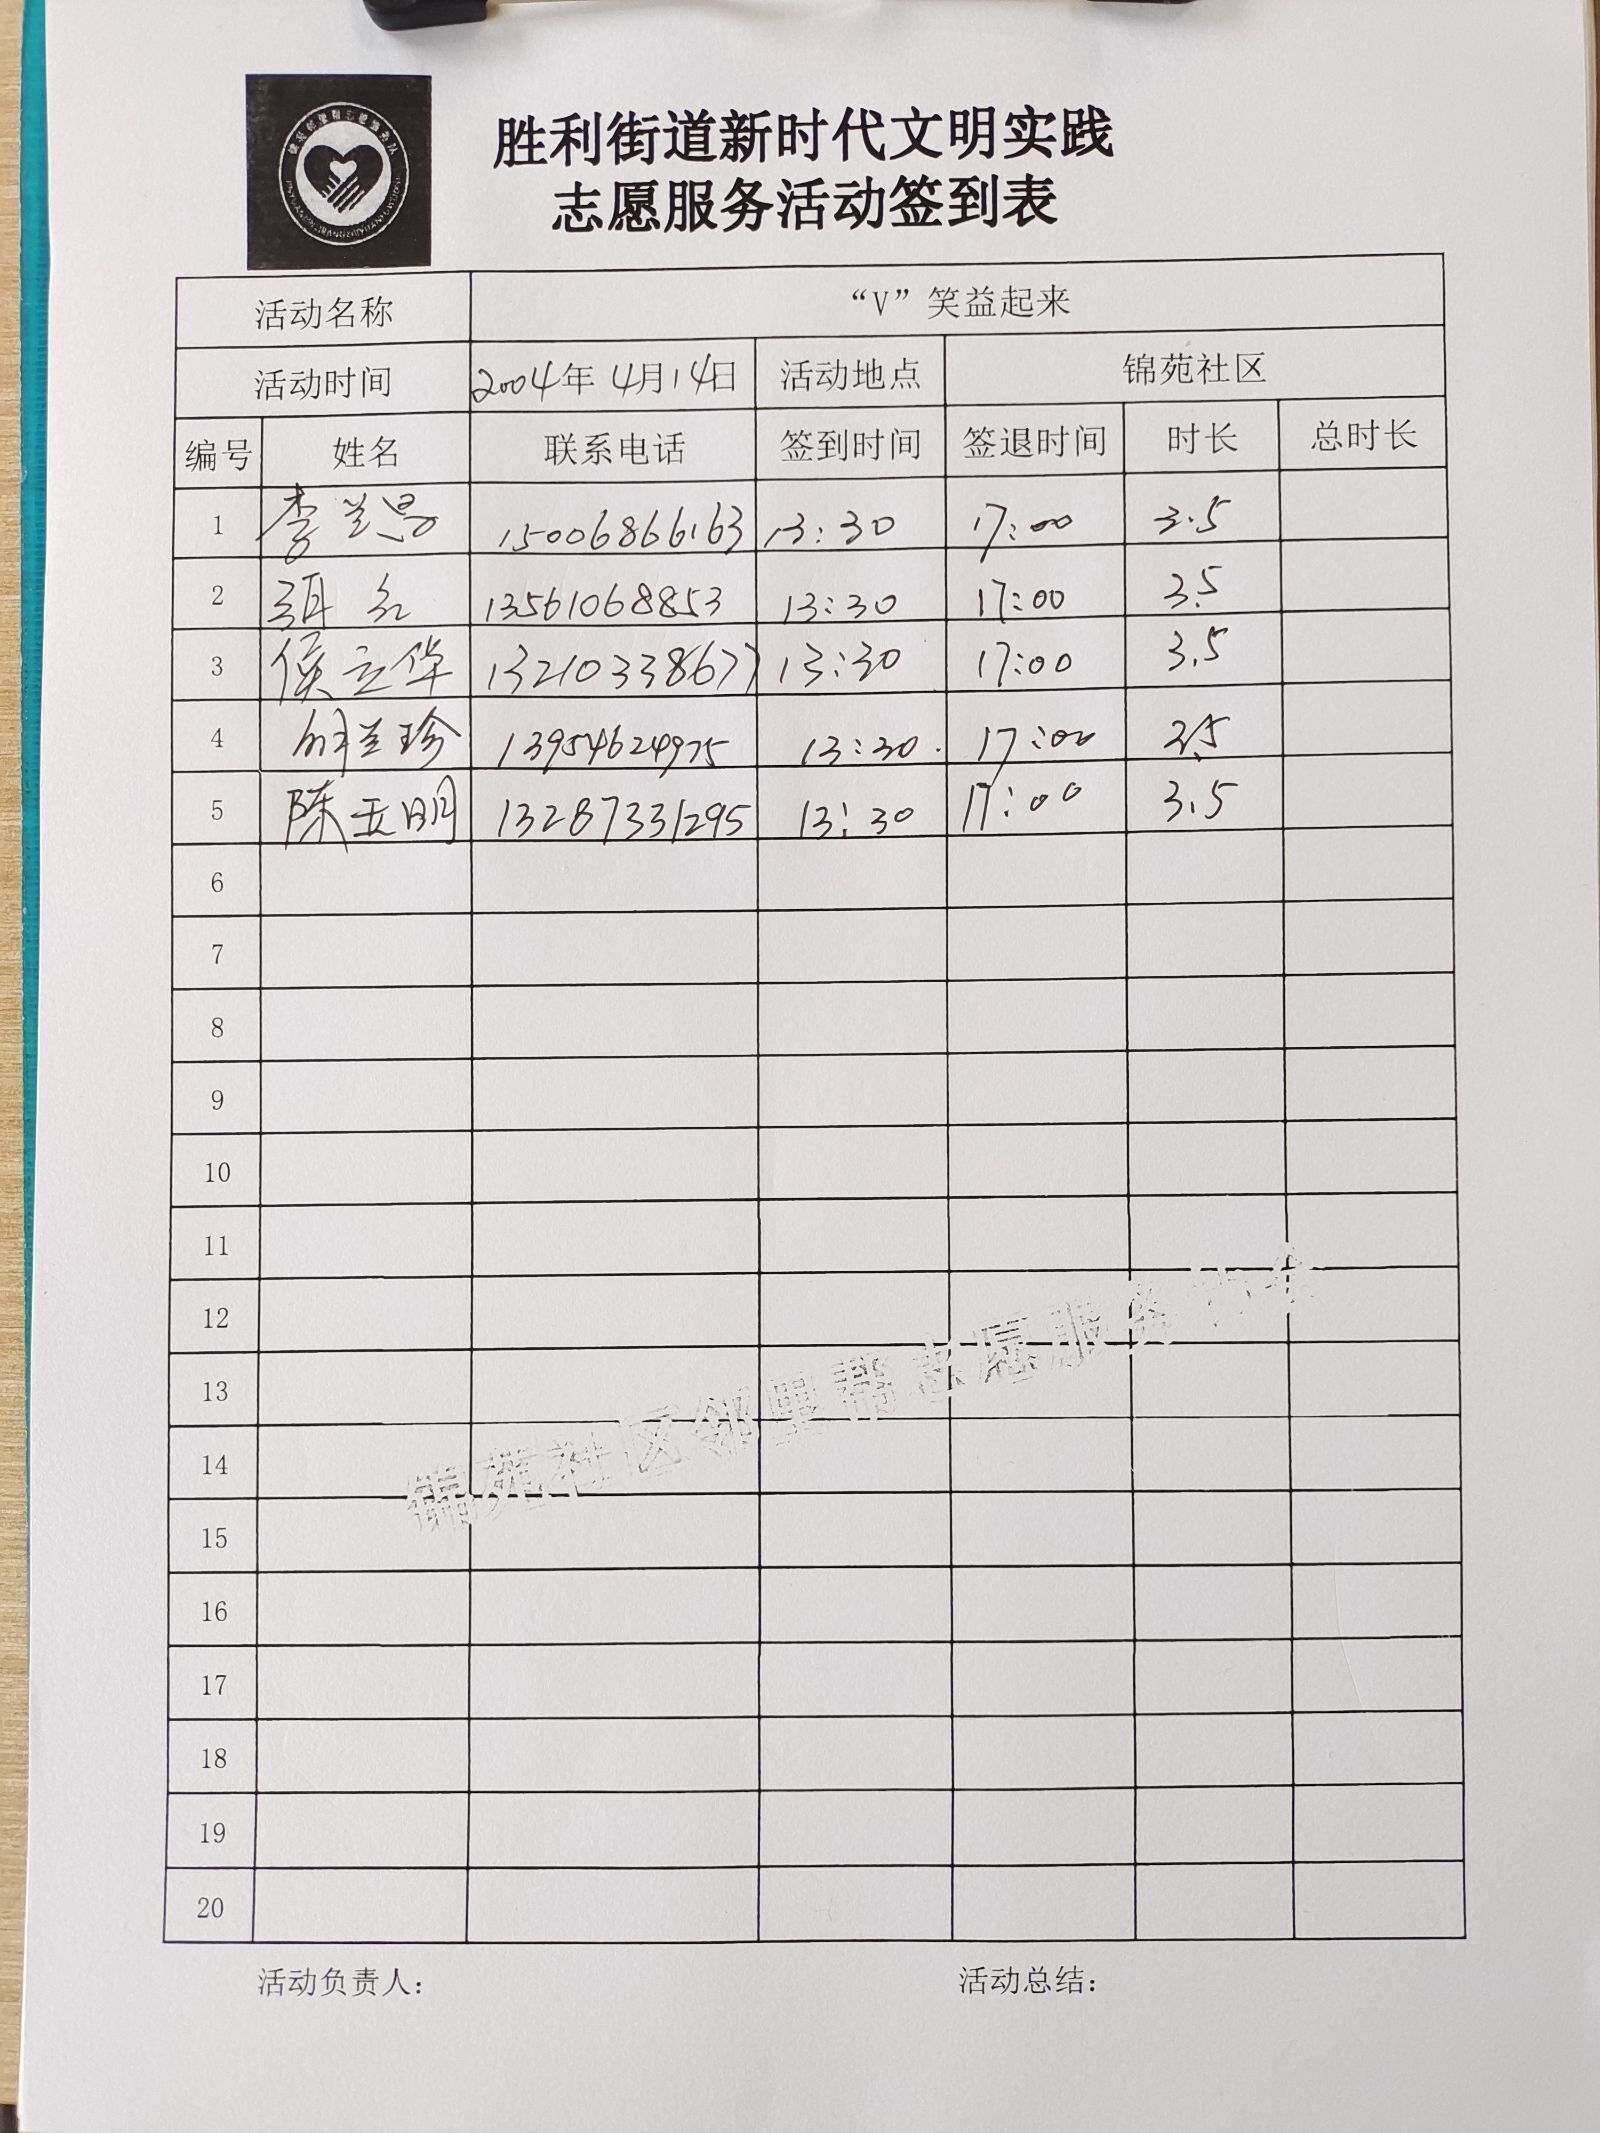 胜利街道新时代文明实践
志愿服务活动签到表
活动名称 “V”笑益起来
活动时间 2004年 4月14日 活动地点 锦苑社区
编号 姓名 联系电话 签到时间 签退时间 时长 总时长
1 李兰 15006866163 13:30 17:00 3.5
2 13561068853 13:30 17:00 3.5
3 侯立华 13210338677 13:30 17:00 3.5
4 兰珍 13954624975 13:30 17:00 3.5
5 陈亚明 13287331295 13:30 17:00 3.5
6
7
8
9
10
11
12
13
14
15
16
17
18
19
20
锦苑社区邻里帮志愿服务协会
活动负责人: 活动总结: